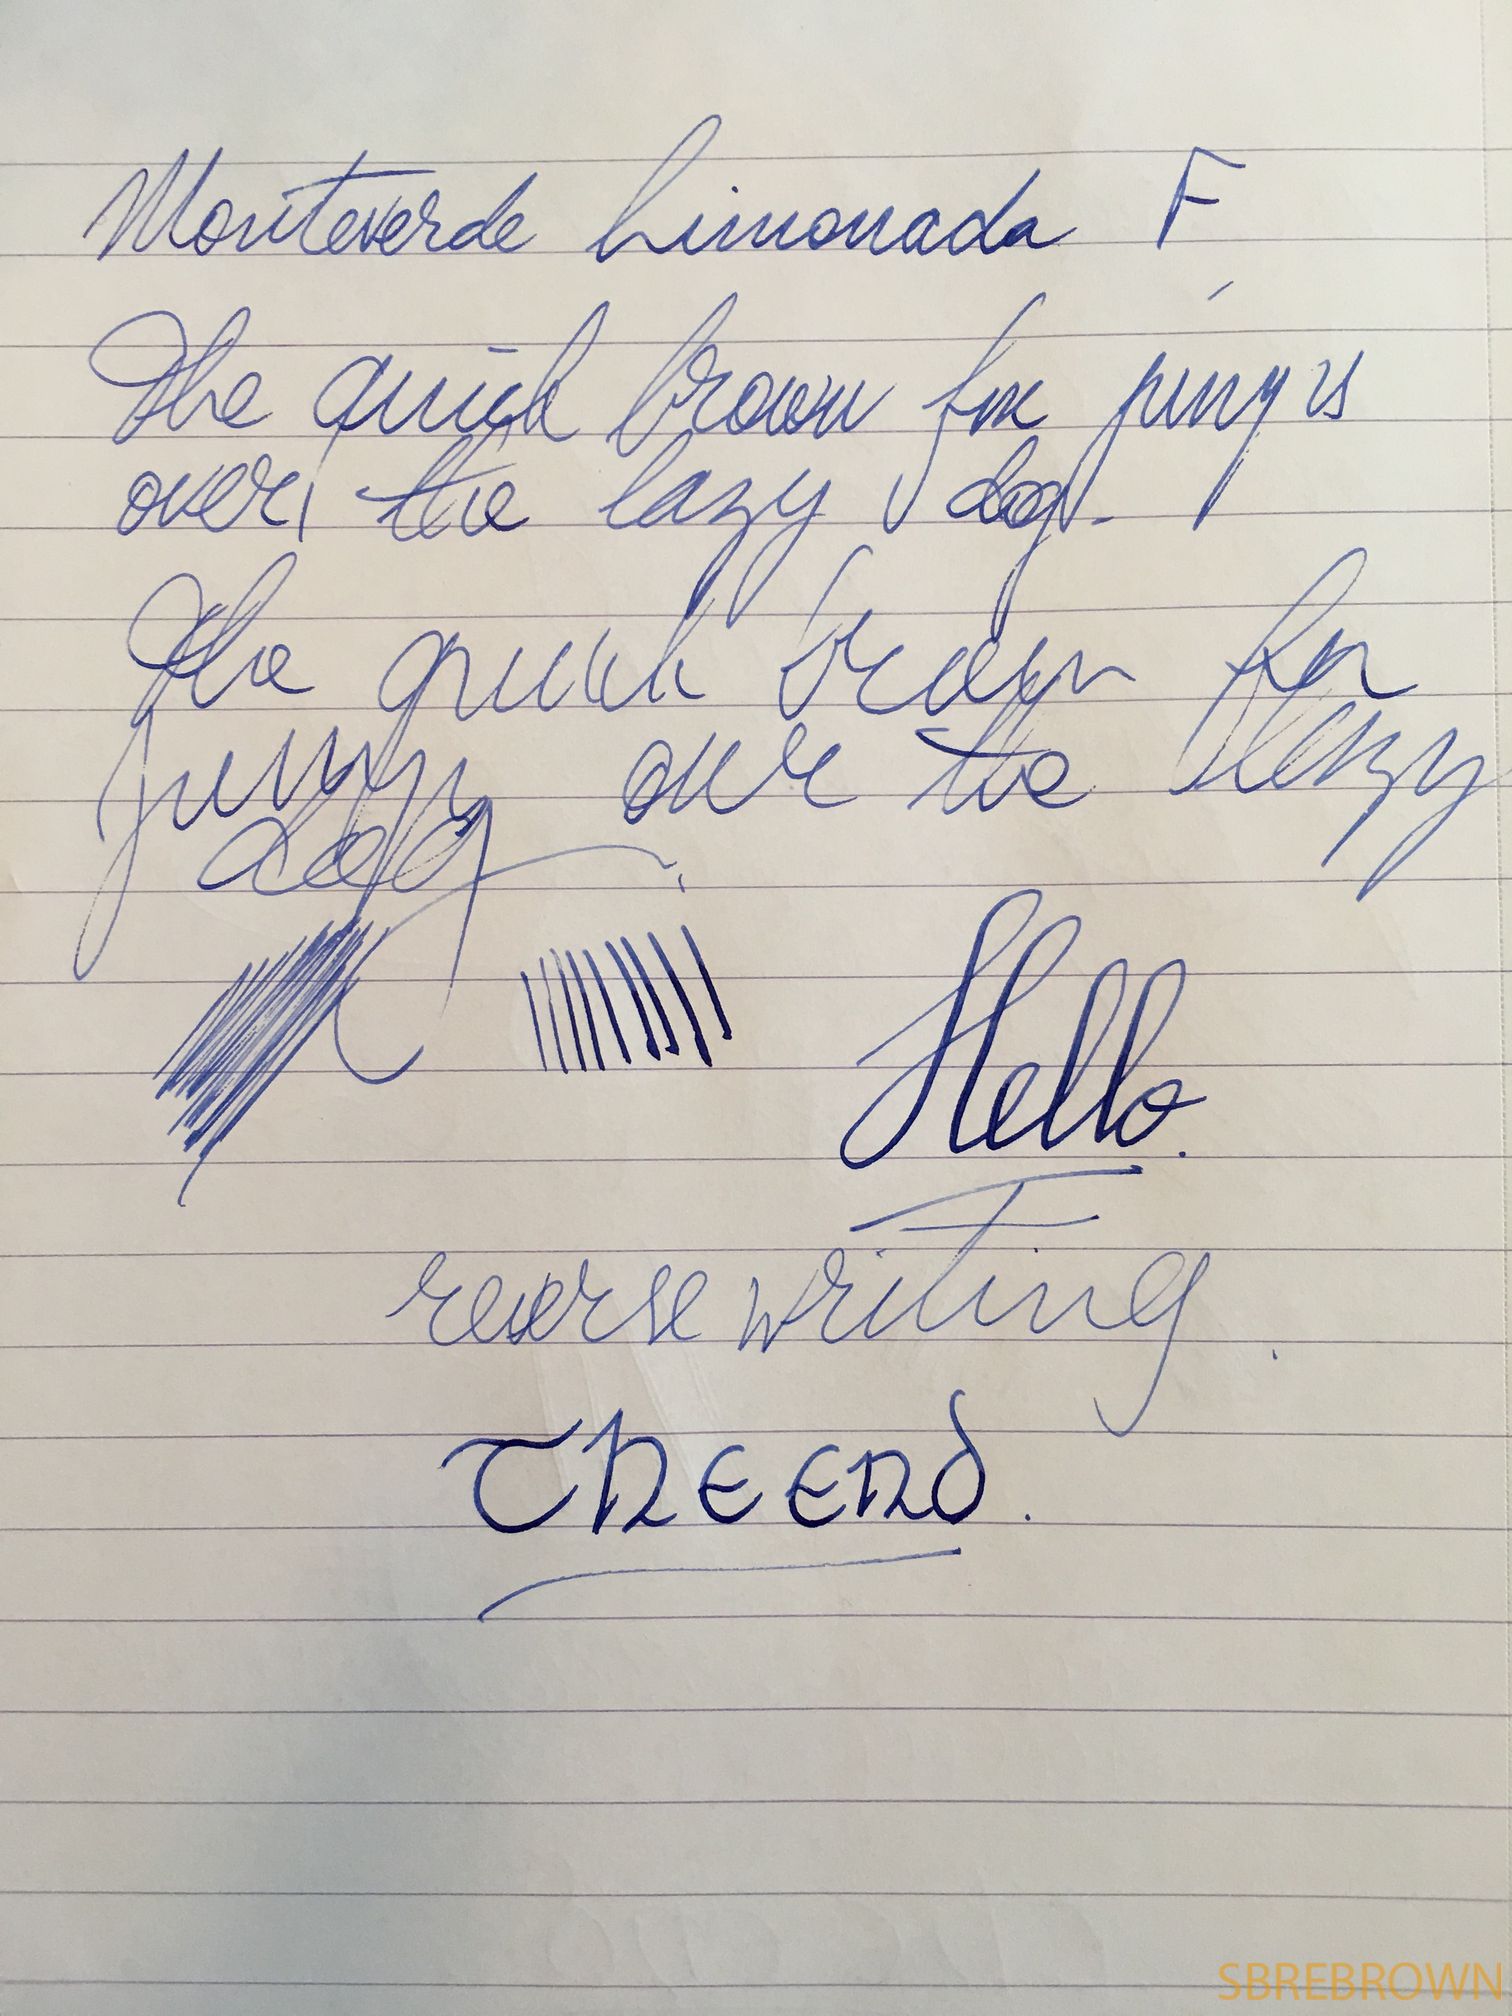 Monteverde Limonada F
The quick brown fox jumps
over the lazy dog.
The quick brown fox
jumps over the lazy
dog.
Hello.
reverse writing.
THE END.
SBREBROWN